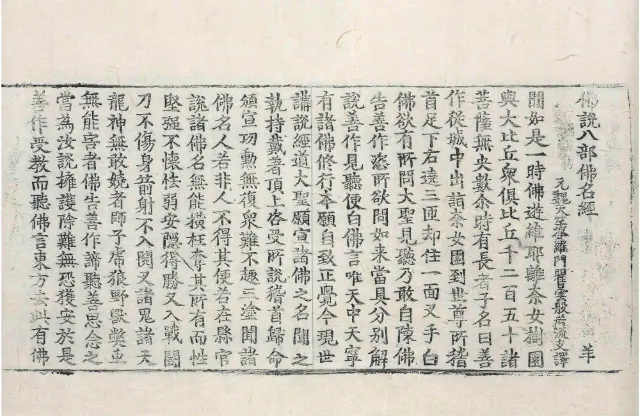 佛說八部佛名經 羊
元魏天竺婆羅門瞿曇般若流支譯
聞如是一時佛遊維耶離奈女樹園
與大比丘眾俱比丘千二百五十諸
菩薩無央數爾時有長者子名曰善
作從城中出詣奈女園到世尊所稽
首足下右遶三匝却住一面叉手白
佛欲有所問大聖見聽乃敢自陳佛
告善作恣所欲問如來當具分別解
說善作見聽便白佛言唯天中天寧
有諸佛修行本願自致正覺今現世
講說經道大聖願宣諸佛之名聞之
執持戴著頂上啓受所說稽首歸命
頒宣功勳無復眾難不趣三塗聞諸
佛名人若非人不得其便若在縣官
說諸佛名無能橫枉奪其所有而性
堅强不懷怯弱安隱得勝又入戰鬪
刀不傷身箭射不入閱叉諸鬼諸天
龍神無敢嬈者師子虎狼野獸𤢌蟲
無能害者佛告善作諦聽善思念之
當為汝說擁護除難無恐獲安於是
善作受教而聽佛言東方去此有佛